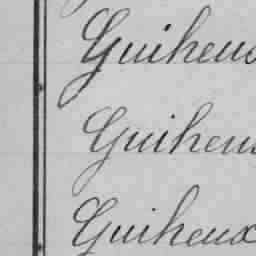 Guiheus
Guiheu
Guiheux